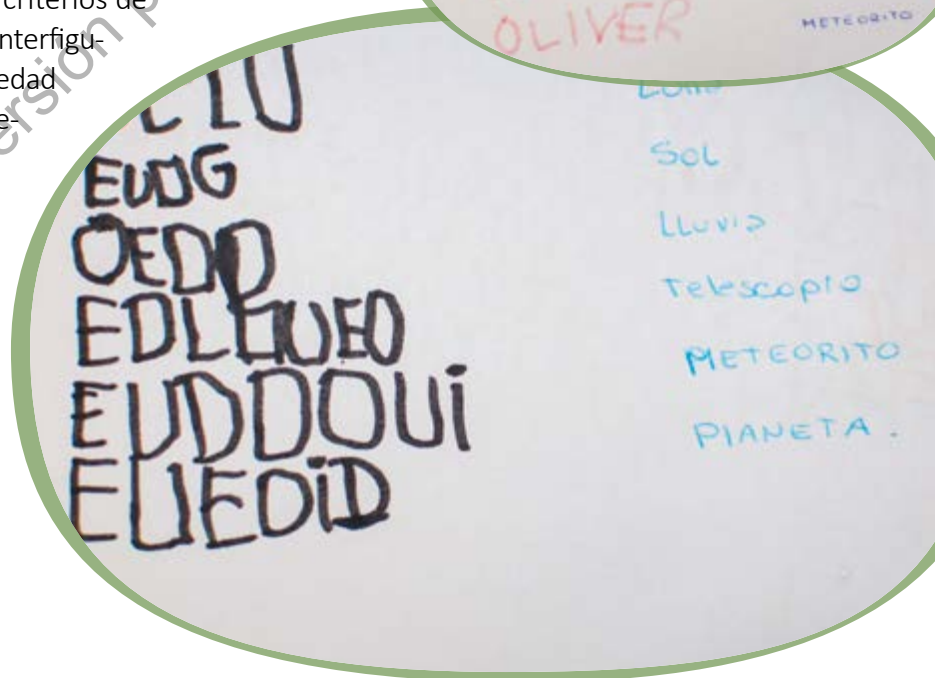 criterios de
nterfigu-
edad
e-
ersión p
OLIVER
METEORITO
EUDG
OEDD
EUDDOUi
EUEDiD
Sol
LLUVIA
Telescopio
METEORITO
PIANETA.